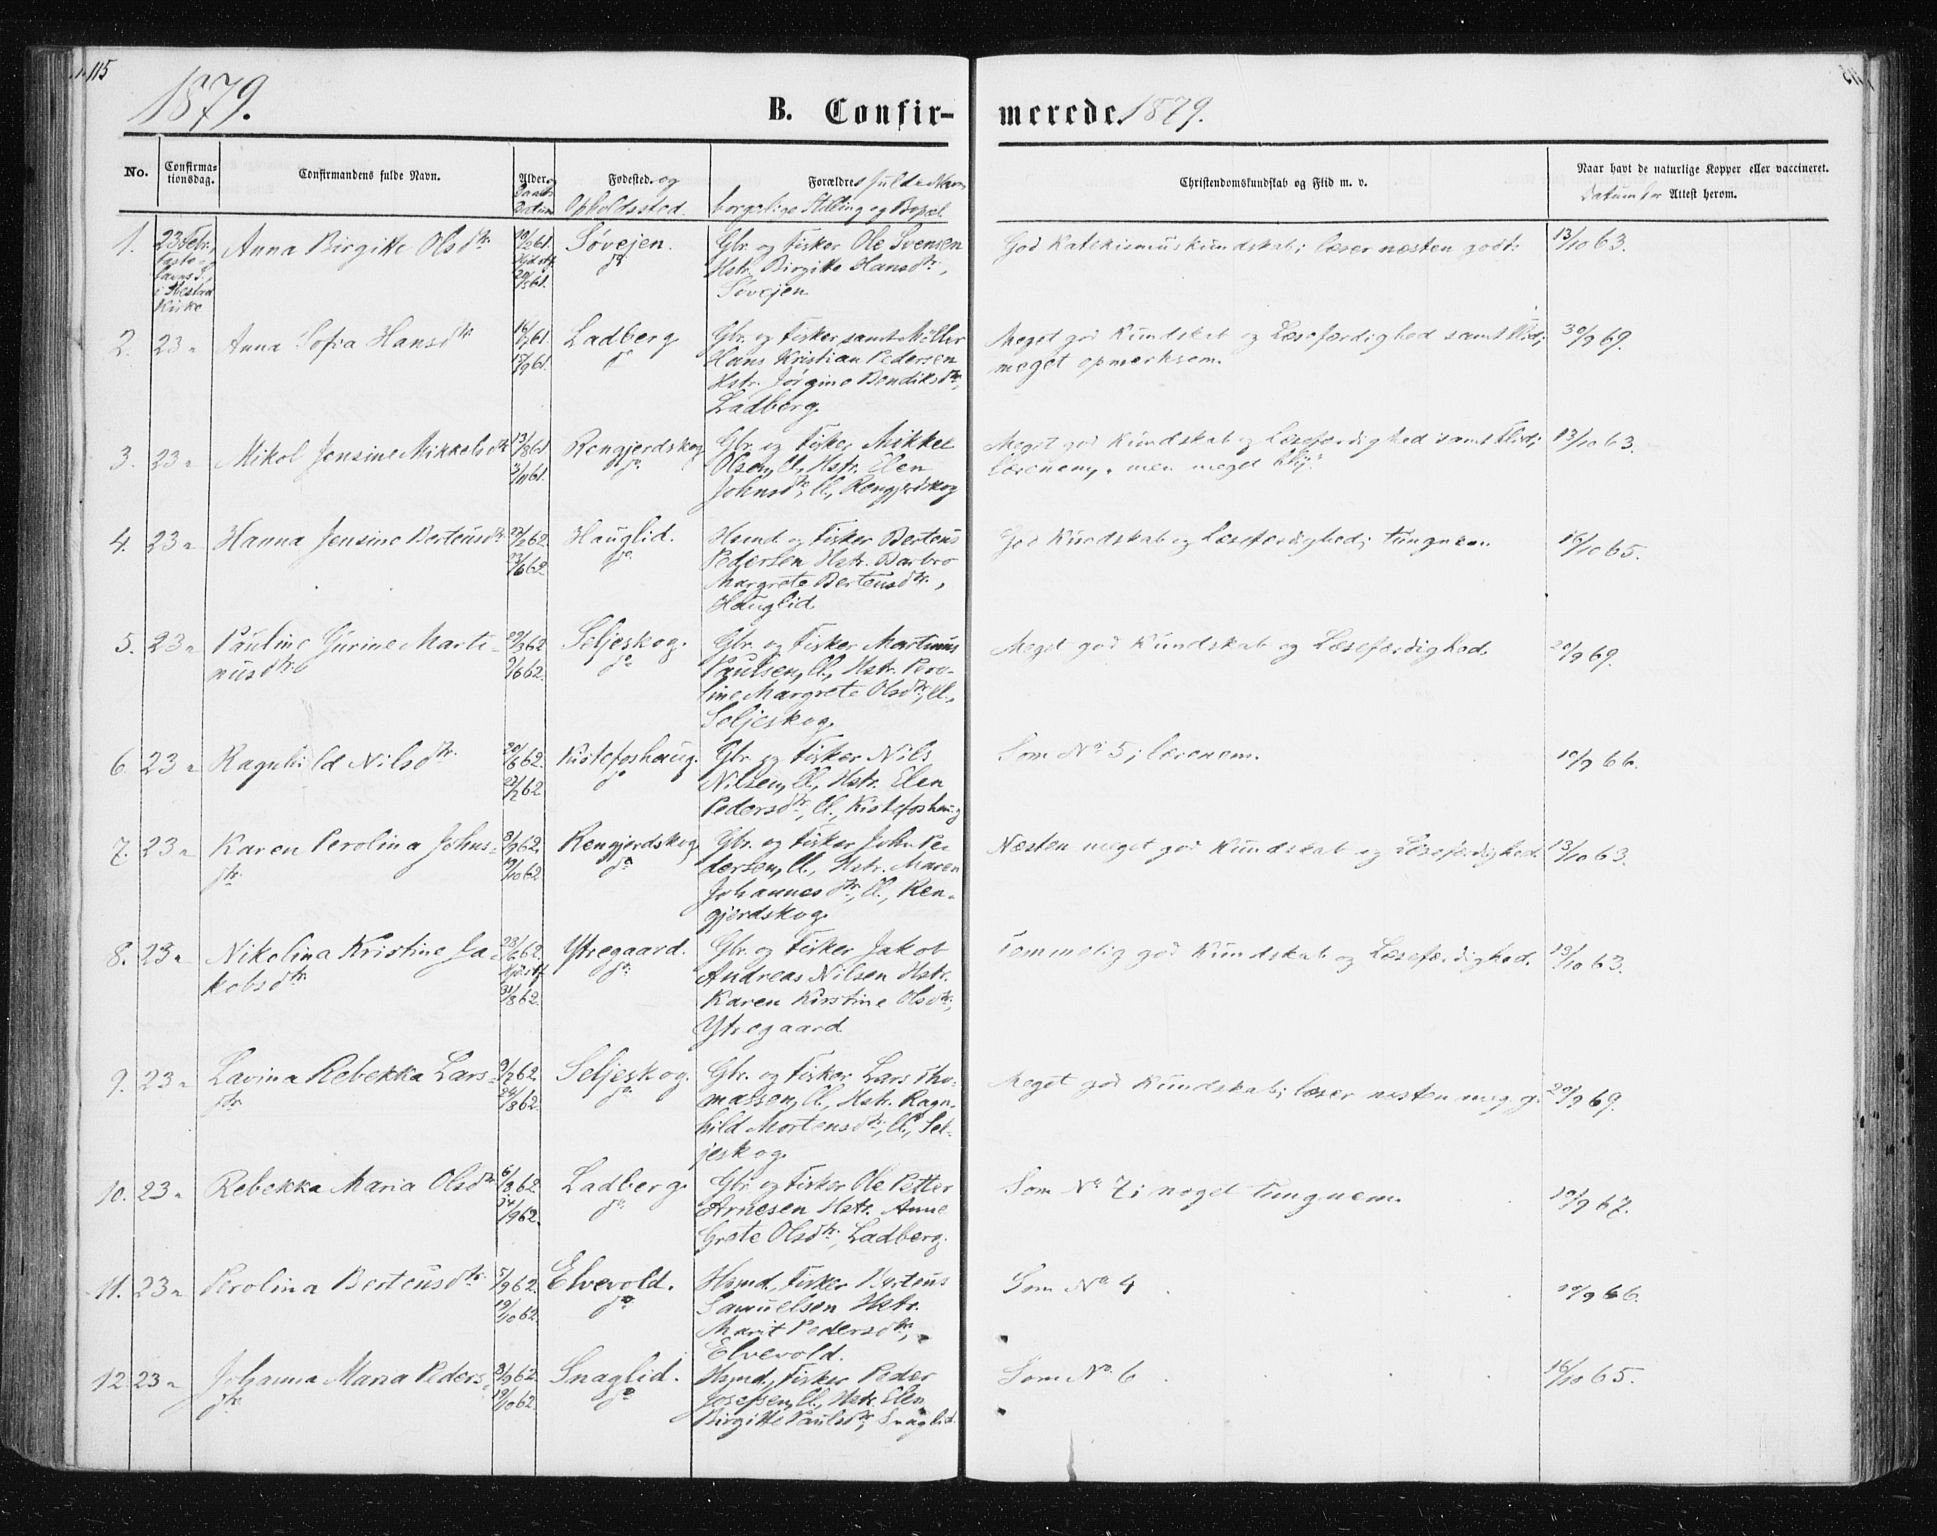 115
1879.
B. Confir-
merede. 1879.
No.
Confirma-
tionsdag.
Confirmandens fulde Navn.
Alder og
Daabs
Datum
Fødested. og
Opholdssted.
Forældres fulde Navn
borgelige Stilling og Bopæl
Christendomskundskab og Flid m. v.
Naar havt de naturlige Kopper eller vaccineret.
Datum for Attest herom.
1.
23 Febr.
i Hestad
Kirke
Anna Birgitte Olsdtr.
Søvejen.
do
Gbr. og Fisker Ole Svensen
Hstr. Birgitte Hansdtr.,
Søvejen
God Katekismuskundskab; læser næsten godt.
13/10 63.
2.
23 "
Anna Sofia Hansdtr
17/9 61.
Ladberg
do
Gbr. og Fisker samt Møller
Hans Kristian Pedersen
Hstr. Jørgine Bendiksdtr,
Ladberg.
Meget god Kundskab og Læsefærdighed samt Flid;
meget opmærksom.
30/9 69.
3.
23 "
Mikol Jensine Mikkelsdtr
13/8 61
3/11 61.
Rengjerdskog
do
Gbr. og Fisker Mikkel
Olsen, Ll., Hstr. Elen
Johnsdtr, Ll., Rengjerdskog
Meget god Kundskab og Læsefærdighed samt Flid;
Lærenem, men meget bly.
13/10 63.
4.
23 "
Hanna Jensine Berteusdtr
27/2 62.
Hauglid.
do
Hsmd og Fisker Berteus
Pedersen Hstr. Barbro
Margrete Berteusdtr.,
Hauglid
God Kundskab og Læsefærdighed; tungnem.
16/10 65.
5.
23 "
Pauline Gurine Marti-
nusdtr.
29/3 62
9/6 62.
Seljeskog.
do
Gbr. og Fisker Martinus
Paulsen, Ll., Hstr. Pero-
line Margrete Olsdtr, Ll.,
Seljeskog.
Meget god Kundskab og Læsefærdighed.
20/9 69.
6.
23 "
Ragnhild Nilsdtr.
20/6 62.
27/7 62
Kistefoshaug.
do
Gbr og Fisker Nils
Nilsen, Ll., Hstr. Elen
Pedersdtr, Ll., Kistefoshaug
Som No 5; lærenem.
10/9 66.
7.
23 "
Karen Perolina Johns-
dtr.
8/9 62.
19/10 62
Rengjerdskog
do
Gbr. og Fisker John Pe
dersen, Ll., Hstr. Maren
Johannesdtr., Ll., Ren-
gjerdskog.
Næsten meget god Kundskab og Læsefærdighed.
13/10 63.
8.
23 "
Nikolina Kristine Ja-
kobsdtr.
28/6 62.
31/8 62.
Ytregaard.
do
Gbr. og Fisker Jakob
Andreas Nilsen Hstr.
Karen Kirstine Olsdtr,
Ytregaard
Temmelig god Kundskab og Læsefærdighed.
13/10 63.
9.
23 "
Lavina Rebekka Lars-
dtr.
9/7 62.
24/8 62.
Seljeskog.
do
Gbr. og Fisker Lars Tho-
massen, Ll., Hstr. Ragn-
hild Mortensdtr, Ll., Sel-
jeskog
Meget god Kundskab; læser næsten meg. g.
20/9 69.
10.
23 "
Rebekka Maria Olsdtr
6/8 62.
14/9 62.
Ladberg.
do
Gbr. og Fisker Ole Petter
Arnesen Hstr. Anne
Grete Olsdtr, Ladberg.
Som No 7; noget tungnem.
10/9 67.
11.
23 "
Perolina Berteusdtr.
5/9 62.
19/10 62.
Elvevold.
do
Hsmd., Fisker Berteus
Samuelsen Hstr.
Marit Pedersdtr,
Elvevold.
Som No 4
10/9 66.
12
23 "
Johanna Maria Peders-
dtr.
8/9 62.
19/10 62.
Snaglid.
do
Hsmd., Fisker Peder
Josefsen, Ll., Hstr. Elen
Birgitte Paulsdtr, Snaglid.
Som No. 6
16/10 65.